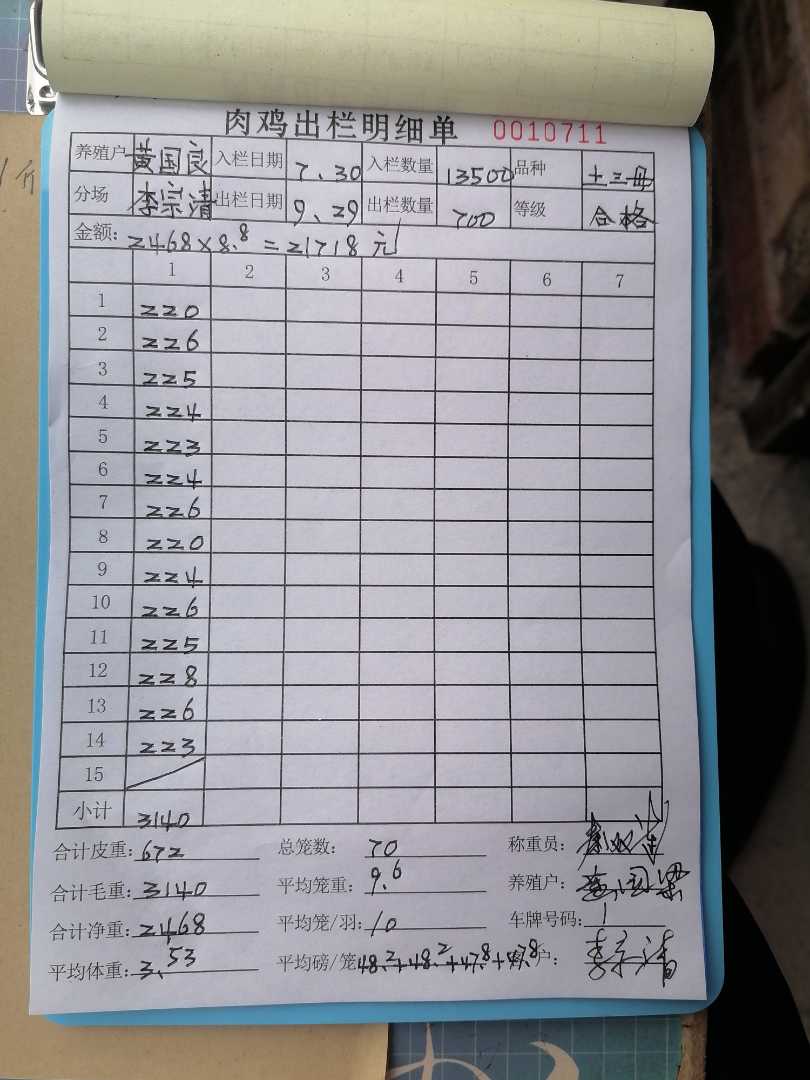 肉鸡出栏明细单 0010711
养殖户 黄国良 入栏日期 7.30 入栏数量 13500 品种 土三毋
分场 李宗清 出栏日期 9.29 出栏数量 700 等级 合格
金额: 2468×8.8=21718元
1 2 3 4 5 6 7
1 220
2 226
3 225
4 224
5 223
6 224
7 226
8 220
9 224
10 226
11 225
12 228
13 226
14 223
15
小计 3140
合计皮重: 672 总笼数: 70 称重员:
合计毛重: 3140 平均笼重: 9.6 养殖户:
合计净重: 2468 平均笼/羽: 10 车牌号码: 1
平均体重: 3.53 平均磅/笼 48.2+48.2+47.8+47.8 户: 李宗清
1斤